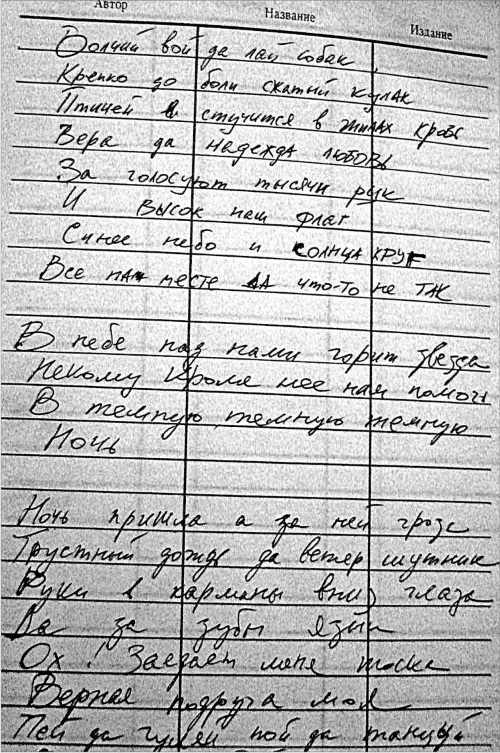 Автор Название Издание
Волчий вой да лай собак,
Крепко до боли сжатый кулак
Птицей в стучится в жилах кровь
Вера да надежда любовь
За голосуют тысячи рук
И высок наш флаг
Синее небо и солнца круг
Все на месте да что-то не так
В небе над нами горит звезда
Некому кроме нее нам помочь
В темную, темную темную
Ночь
Ночь пришла а за ней гроза
Грустный дождь да ветер шутник
Руки в карманы вниз глаза
Да за зубы язык
Ох! Заедает меня тоска
Верная подруга моя
Пей да гуляй пой да танцуй